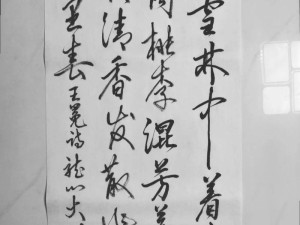 雪林中着
同桃李混芳
清香发散
里春王冕诗